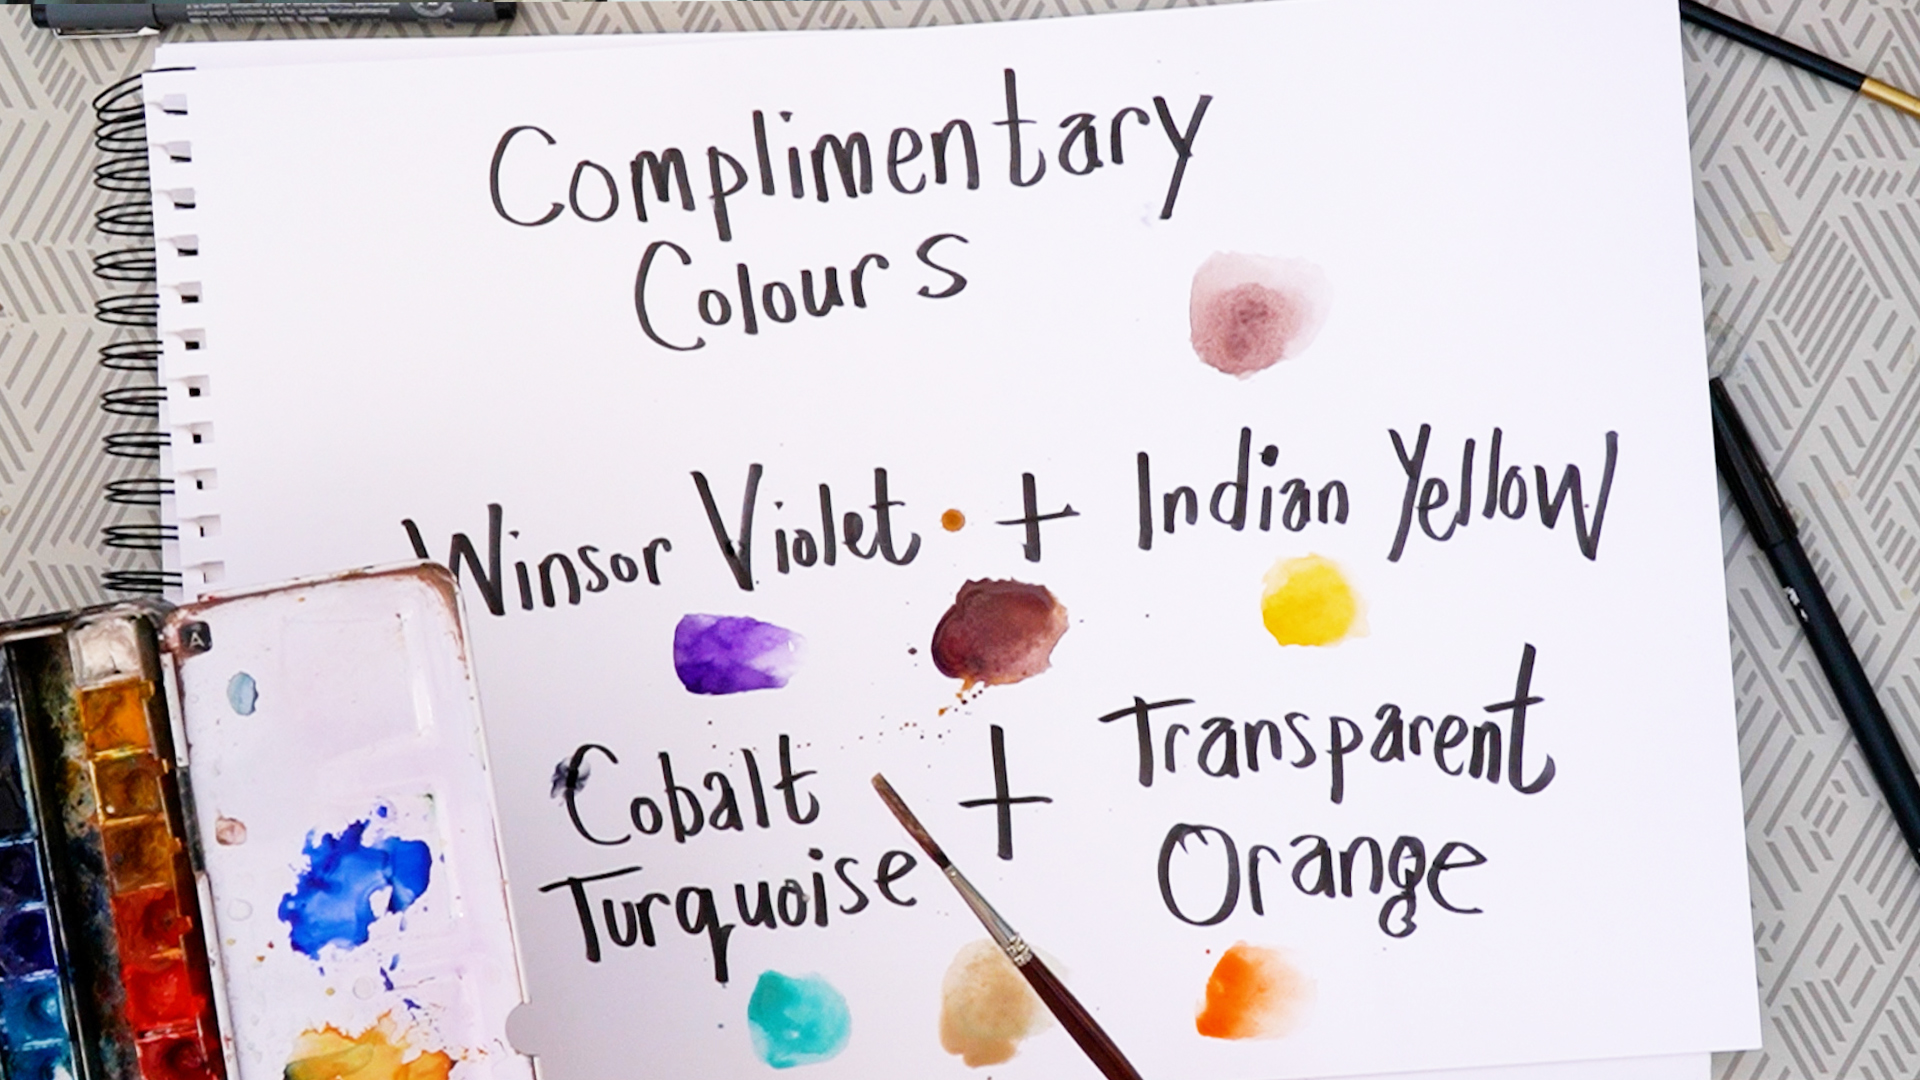 Complimentary
Colours
Winsor Violet + Indian Yellow
Cobalt + Transparent
Turquoise Orange
A